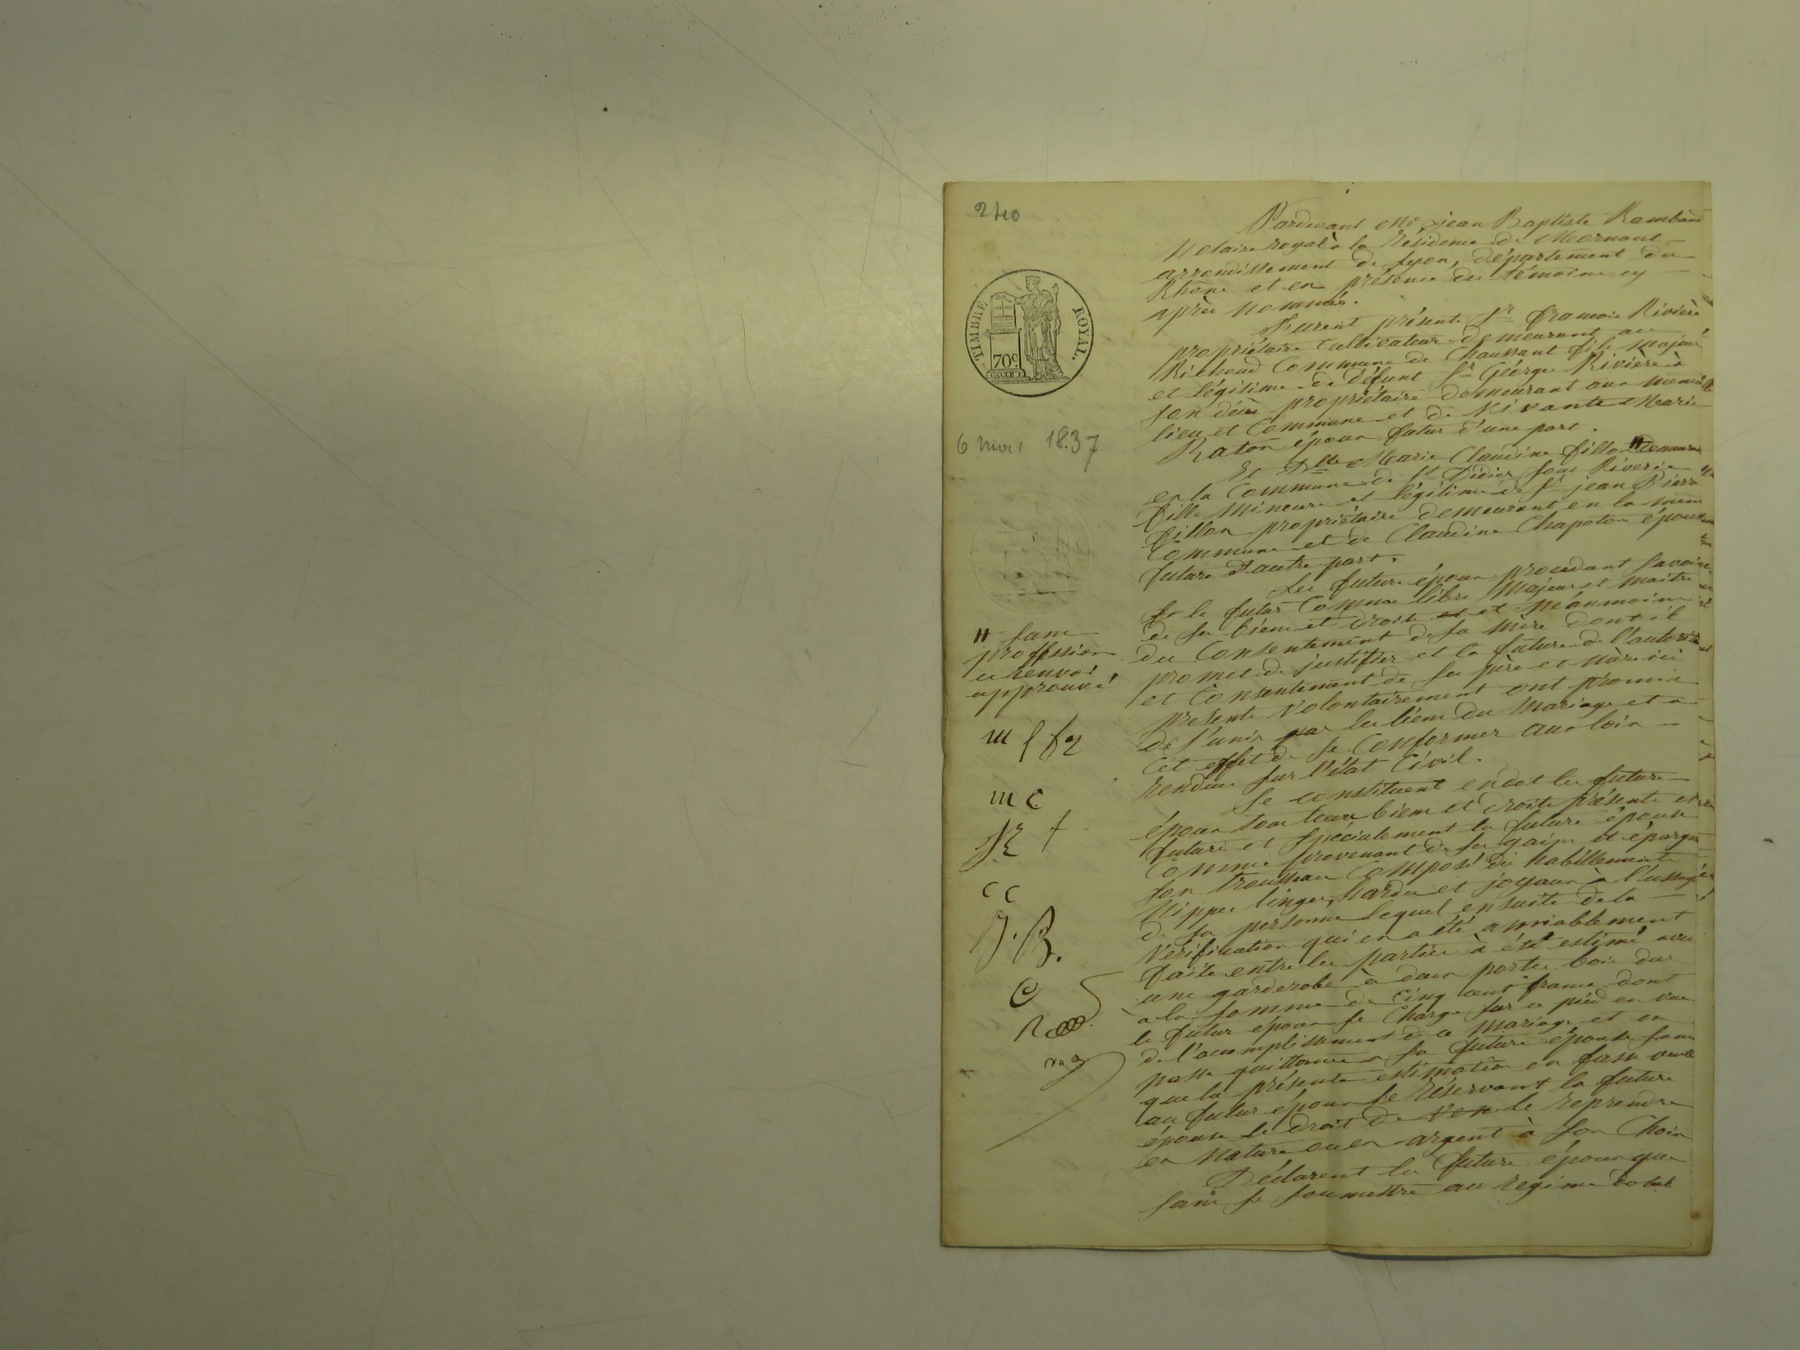 240
TIMBRE ROYAL.
70c.
6 mai 1837
Pardevant Me jean Baptiste Rambaud
Notaire royal à la Résidence de Mornant
arrondissement de Lyon, département du
Rhône et en présence des témoins cy
après nommés.
Furent présents Sr françois Rivière
propriétaire Cultivateur demeurant au
Richoud Commune de Chaussant fils majeur
et légitime de défunt Sr George Rivière à
son décès propriétaire demeurant aux mêmes
lieu et Commune et de Vivante Marie
Raton époux futur d'une part.
Et Dlle Marie Claudine fillon # demeurant
en la Commune de St Didier sous Riverie
fille mineure et légitime de Sr jean Pierre
fillon propriétaire demeurant en la même
Commune et de Claudine Chapoton épouse
future d'autre part.
Les futurs époux procedant savoir
le futur Comme libre Majeur et maitre
de ses biens et droits et néanmoins
du Consentement de sa mère dont il
promet de justifier et la future de l'autorité
et Consentement de ses père et mère ici
présents volontairement ont promis
de s'unir par les liens du Mariage et à
Cet effet de se Conformer aux loix
rendues sur l'état Civil.
Se constituent en dot les futurs
époux tous leurs biens et droits présents et
futurs et spécialement la future épouse
Comme provenant de ses gains et épargnes
son trousseau Composé des habillements
Nippes linges, hardes et joyaux à l'usage
de sa personne lequel ensuite de la
Vérification qui en a été amiablement
faite entre les parties à été estimé avec
une garderobe à deux portes bois dur
à la somme de Cinq cent francs dont
le futur époux se Charge sur ce pied en vue
de l'accomplissement de ce Mariage et en
passe quittance à sa future épouse sans
que la présente estimation en fasse vente
au futur époux se Réservant la future
épouse le droit de le reprendre
en Nature ou en argent à son Choix
Déclarent les futurs époux que
sans se soumettre au regime dotal
# sans
profession
ce renvoi
approuvé
m f
m c
C C
J. B.